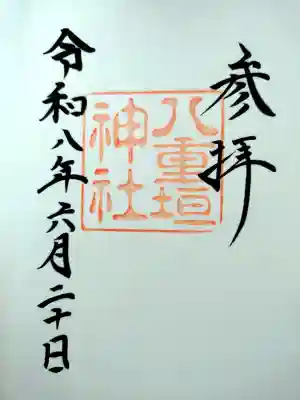 参拝
八重垣
神社
令和八年六月二十日